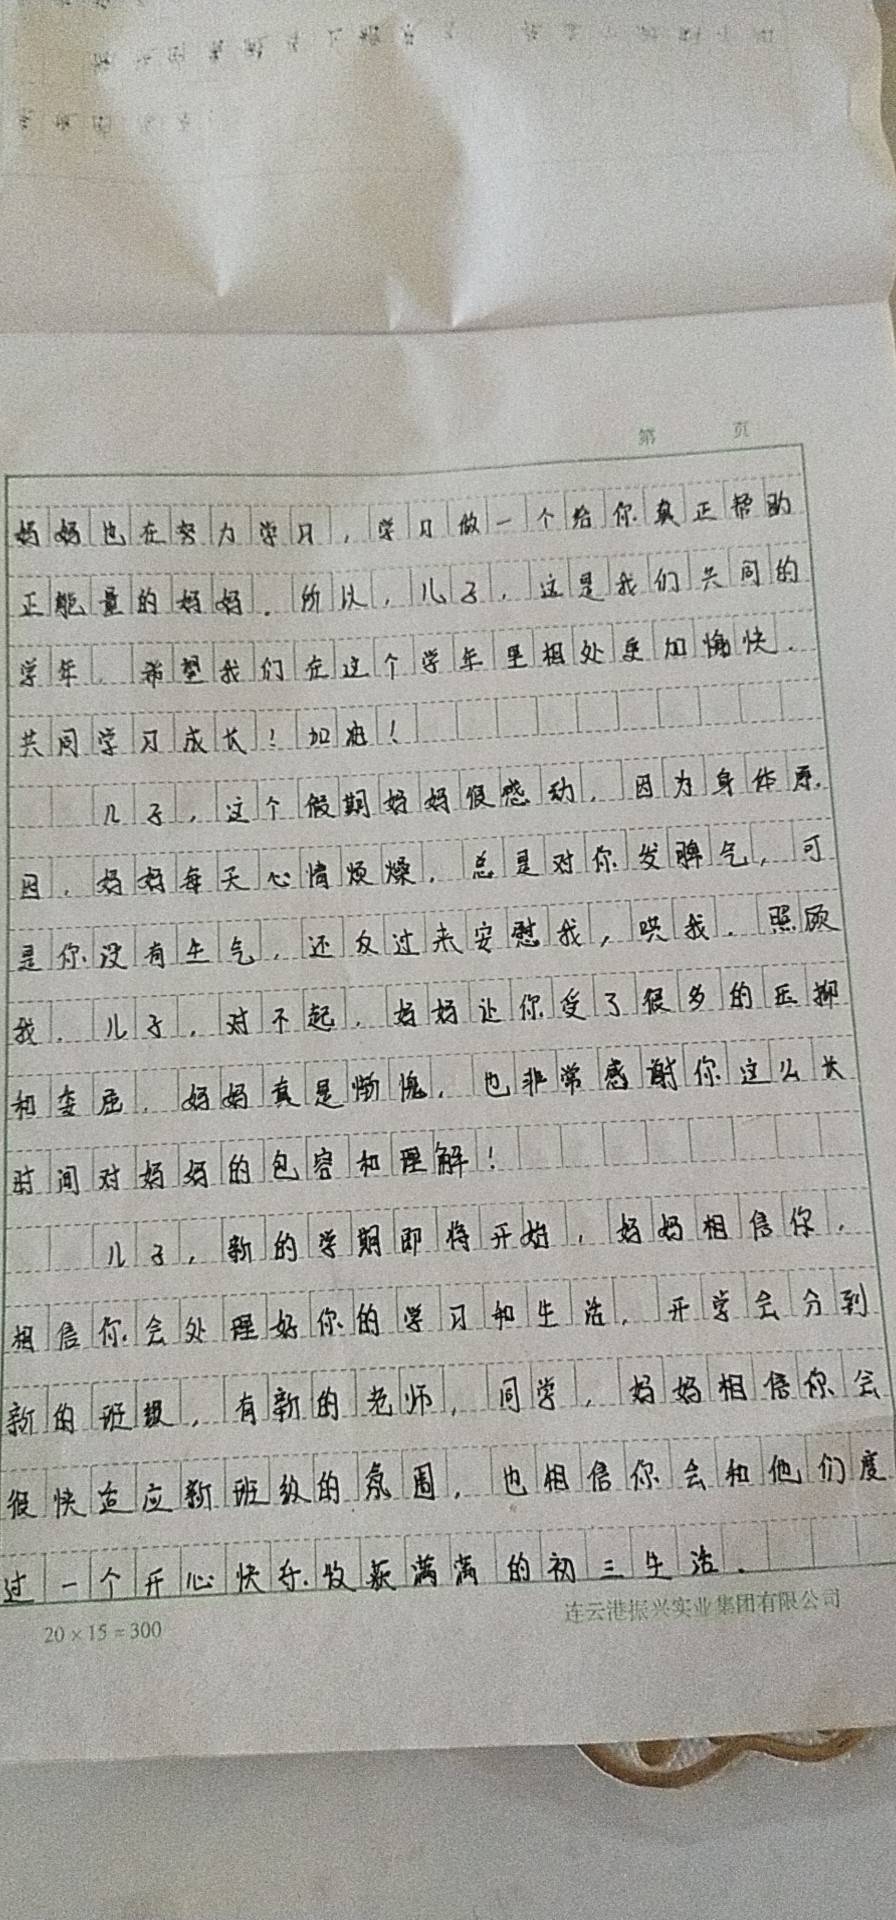 第 页
妈妈也在努力学习，学习做一个给你真正帮助
正能量的妈妈．所以，儿子，这是我们共同的
学年．希望我们在这个学年里相处更加愉快．
共同学习成长！加油！
儿子，这个假期妈妈很感动，因为身体原
因，妈妈每天心情烦燥，总是对你发脾气，可
是你没有生气，还反过来安慰我，哄我．照顾
我．儿子，对不起，妈妈让你受了很多的压抑
和委屈．妈妈真是惭愧，也非常感谢你这么长
时间对妈妈的包容和理解！
儿子，新的学期即将开始，妈妈相信你，
相信你会处理好你的学习和生活，开学会分到
新的班级，有新的老师，同学，妈妈相信你会
很快适应新班级的氛围，也相信你会和他们度
过一个开心快乐．收获满满的初三生活．
20×15=300
连云港振兴实业集团有限公司